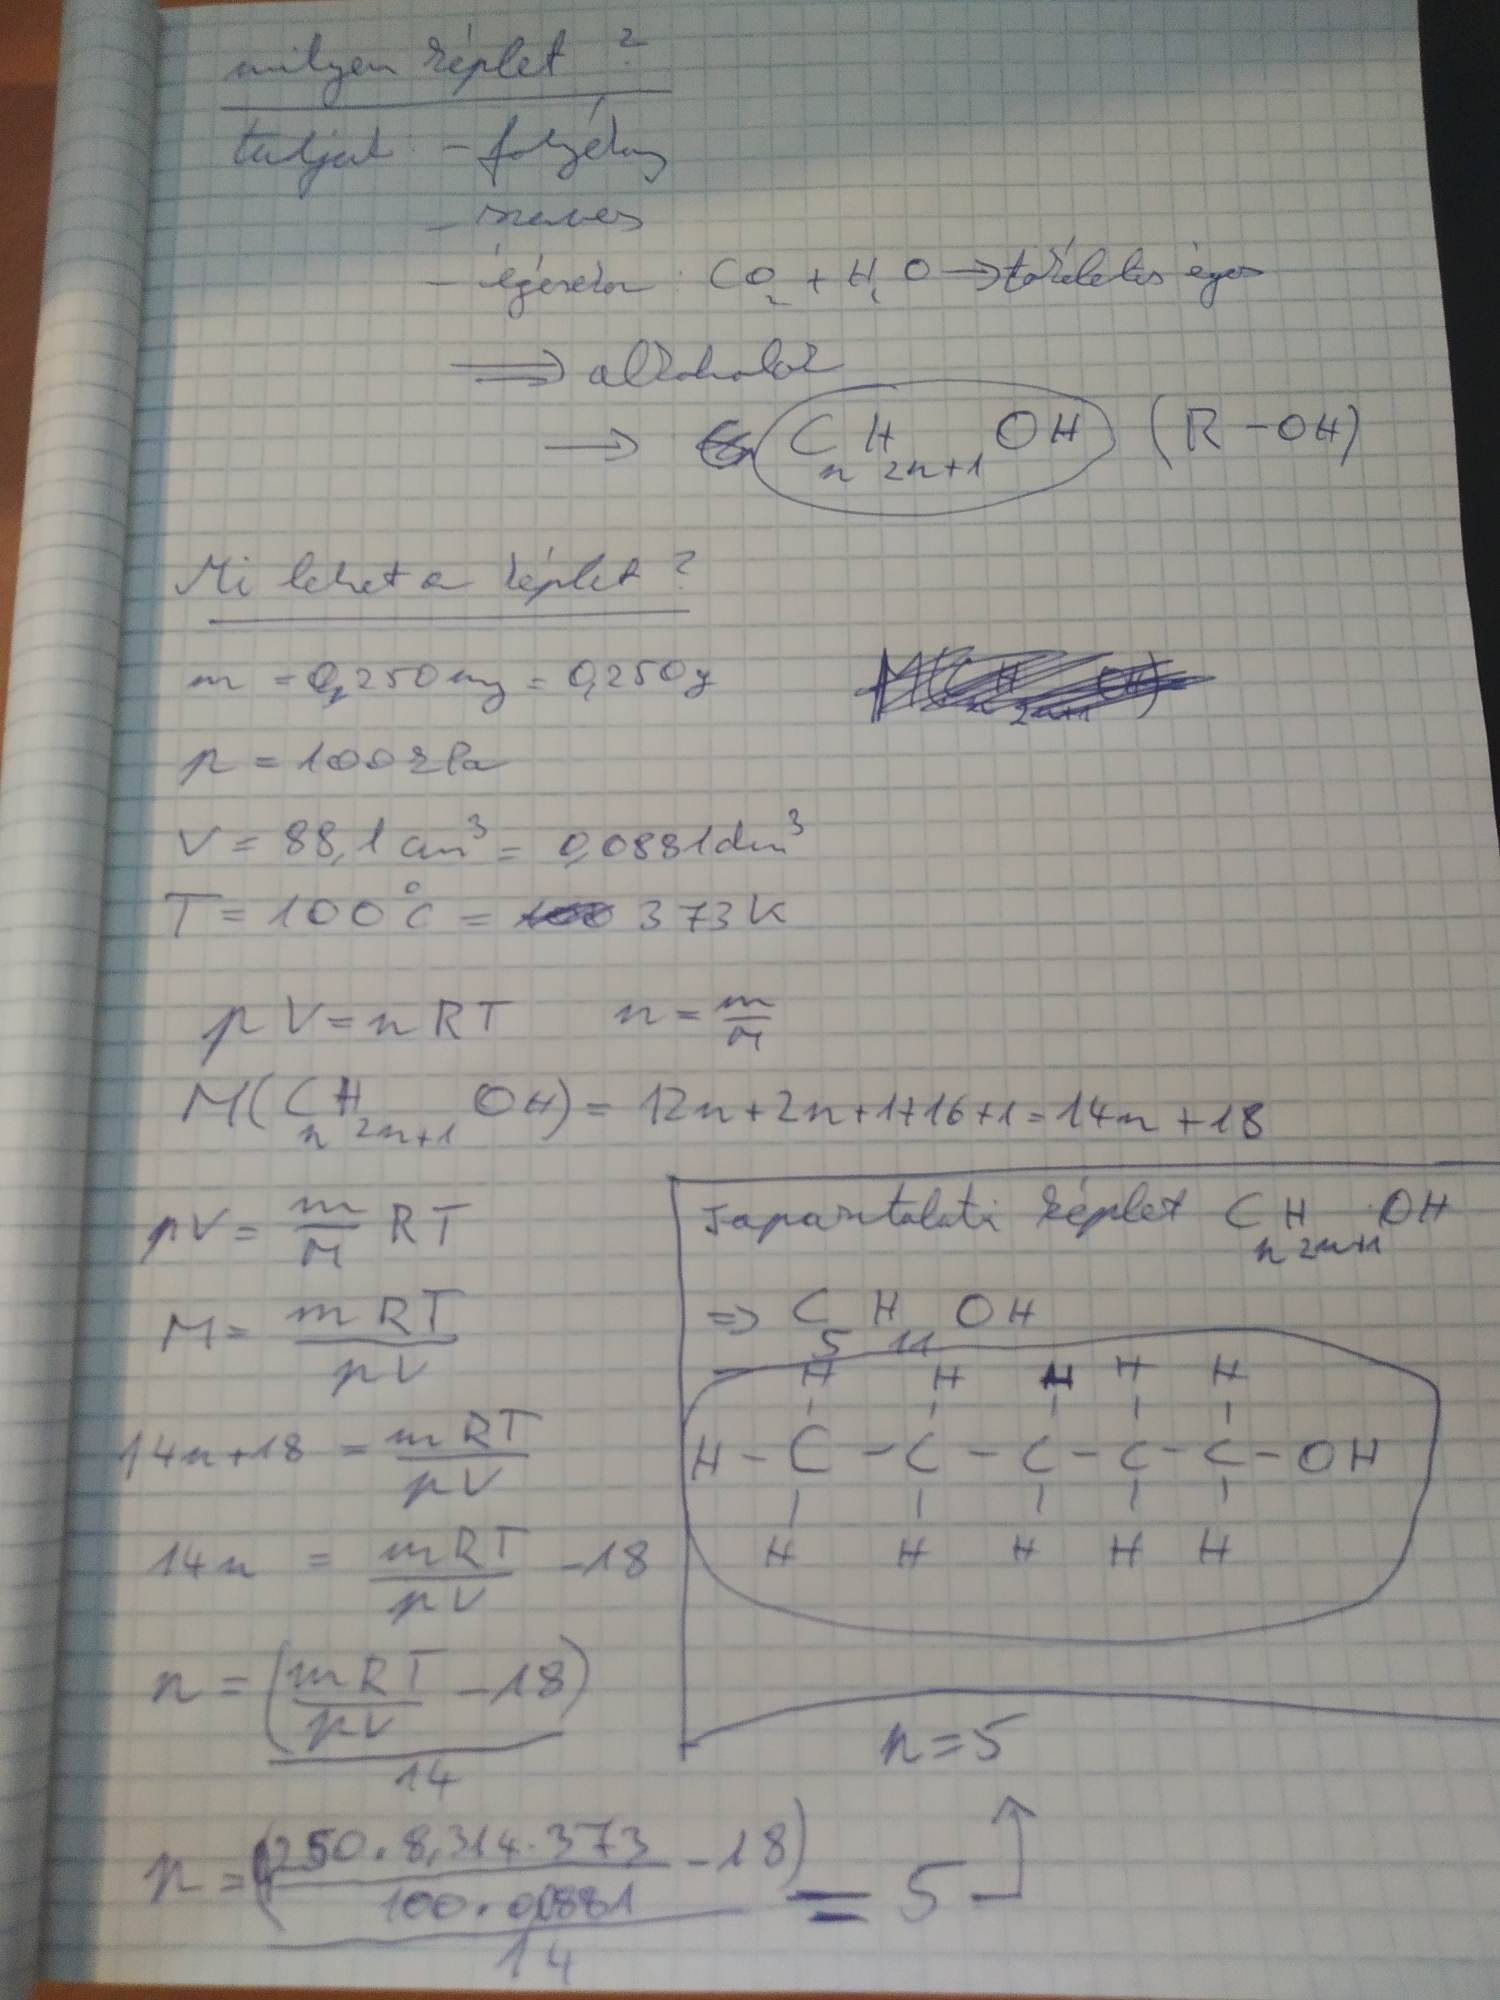 milyen képlet ?
tudjuk: - folyékony
- szerves
- égésekor: CO₂ + H₂O → tökéletes égés
⟹ alkoholok
→ CₙH₂ₙ₊₁OH (R-OH)
Mi lehet a képlet ?
m = 0,250mg = 0,250g
p = 100kPa
V = 88,1 cm³ = 0,0881dm³
T = 100°C = 373K
pV = nRT n = m/M
M(CₙH₂ₙ₊₁OH) = 12n+2n+1+16+1=14n+18
pV = m/M RT
M = mRT/pV
14n+18 = mRT/pV
14n = mRT/pV -18
n = (mRT/pV -18)/14
n = (250·8,314·373/100·0,0881 -18)/14 = 5
n=5
Tapasztalati képlet CₙH₂ₙ₊₁OH
⇒ C₅H₁₁OH
H H H H H
H-C-C-C-C-C-OH
H H H H H